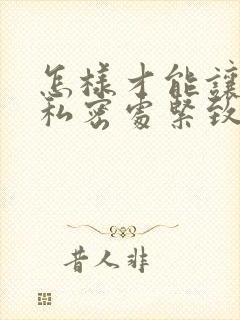 怎樣才能讓
私密處緊致
昔人非